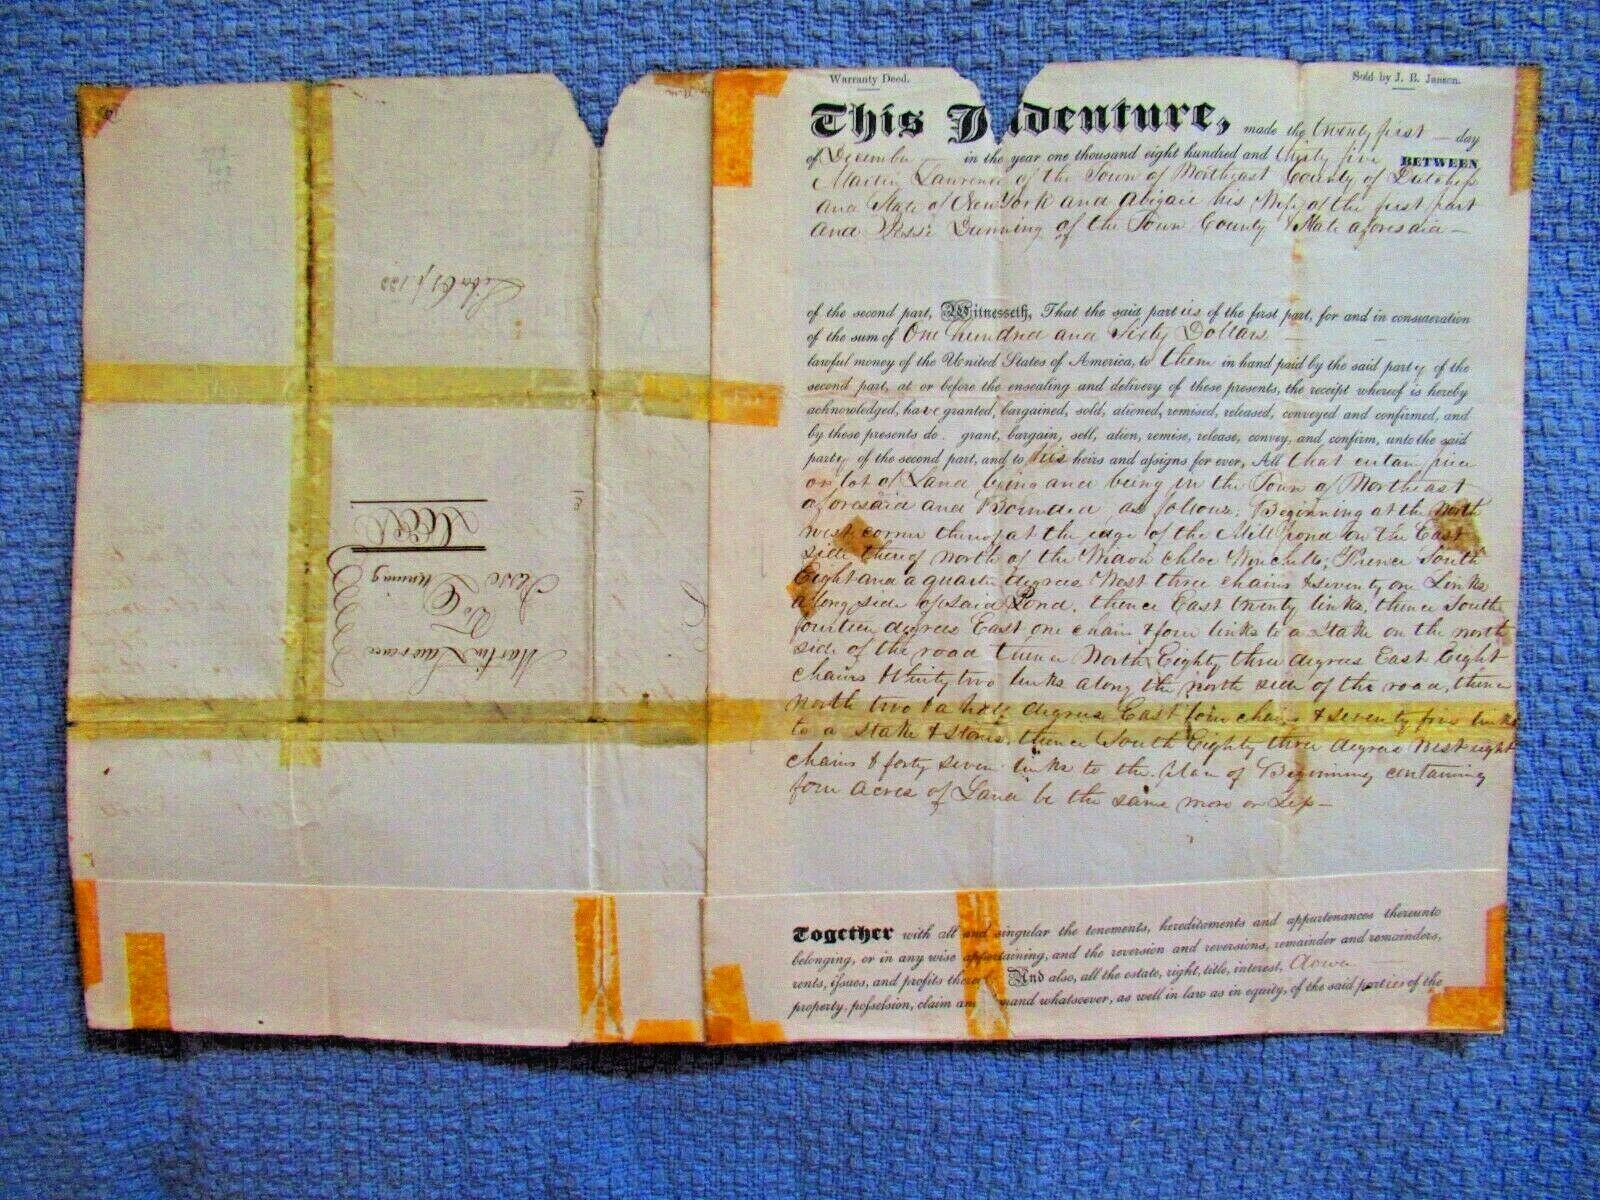 Warranty Deed.
Sold by J. B. Jansen.
This Indenture, made the twenty first day
of December in the year one thousand eight hundred and thirty five BETWEEN
Martin Lawrence of the Town of Northeast County of Dutchess
and State of New York and Abigail his Wife of the first part
and Jesse Dunning of the Town County & State aforesaid —
of the second part, Witnesseth, That the said parties of the first part, for and in consideration
of the sum of One hundred and Sixty Dollars
lawful money of the United States of America, to them in hand paid by the said party of the
second part, at or before the ensealing and delivery of these presents, the receipt whereof is hereby
acknowledged, have granted, bargained, sold, aliened, remised, released, conveyed and confirmed, and
by these presents do grant, bargain, sell, alien, remise, release, convey, and confirm, unto the said
party of the second part, and to his heirs and assigns for ever, All that certain piece
or lot of Land being and being in the Town of Northeast
aforesaid and Bounded as follows. Beginning at the North
west corner thereof at the edge of the Mill Pond on the East
side thereof north of the Widow Chloe Thence South
Eight and a quarter degrees West three chains & seventy one Links
along side of said Pond, thence East twenty links, thence South
fourteen degrees East one chain & four links to a Stake on the north
side of the road thence North Eighty three degrees East Eight
chains & thirty two links along the north side of the road, thence
North two & a half degrees East four chains & seventy five links
to a Stake & Stones, thence South Eighty three degrees West eight
chains & forty seven links to the place of Beginning containing
four acres of Land be the same more or Less —
Together with all and singular the tenements, hereditaments and appurtenances thereunto
belonging, or in any wise appertaining, and the reversion and reversions, remainder and remainders,
rents, issues, and profits thereof And also, all the estate, right, title, interest, dower
property, possession, claim and demand whatsoever, as well in law as in equity, of the said parties of the
Martin Lawrence
To
Jesse Dunning
Deed